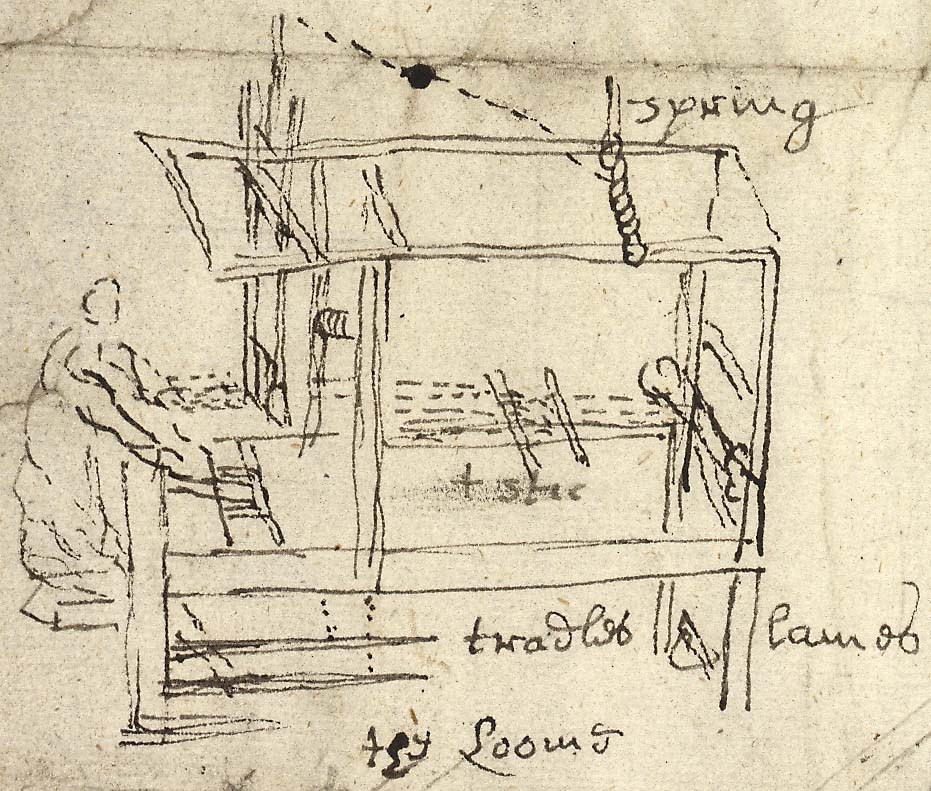 spring
tradles
lames
the Loome